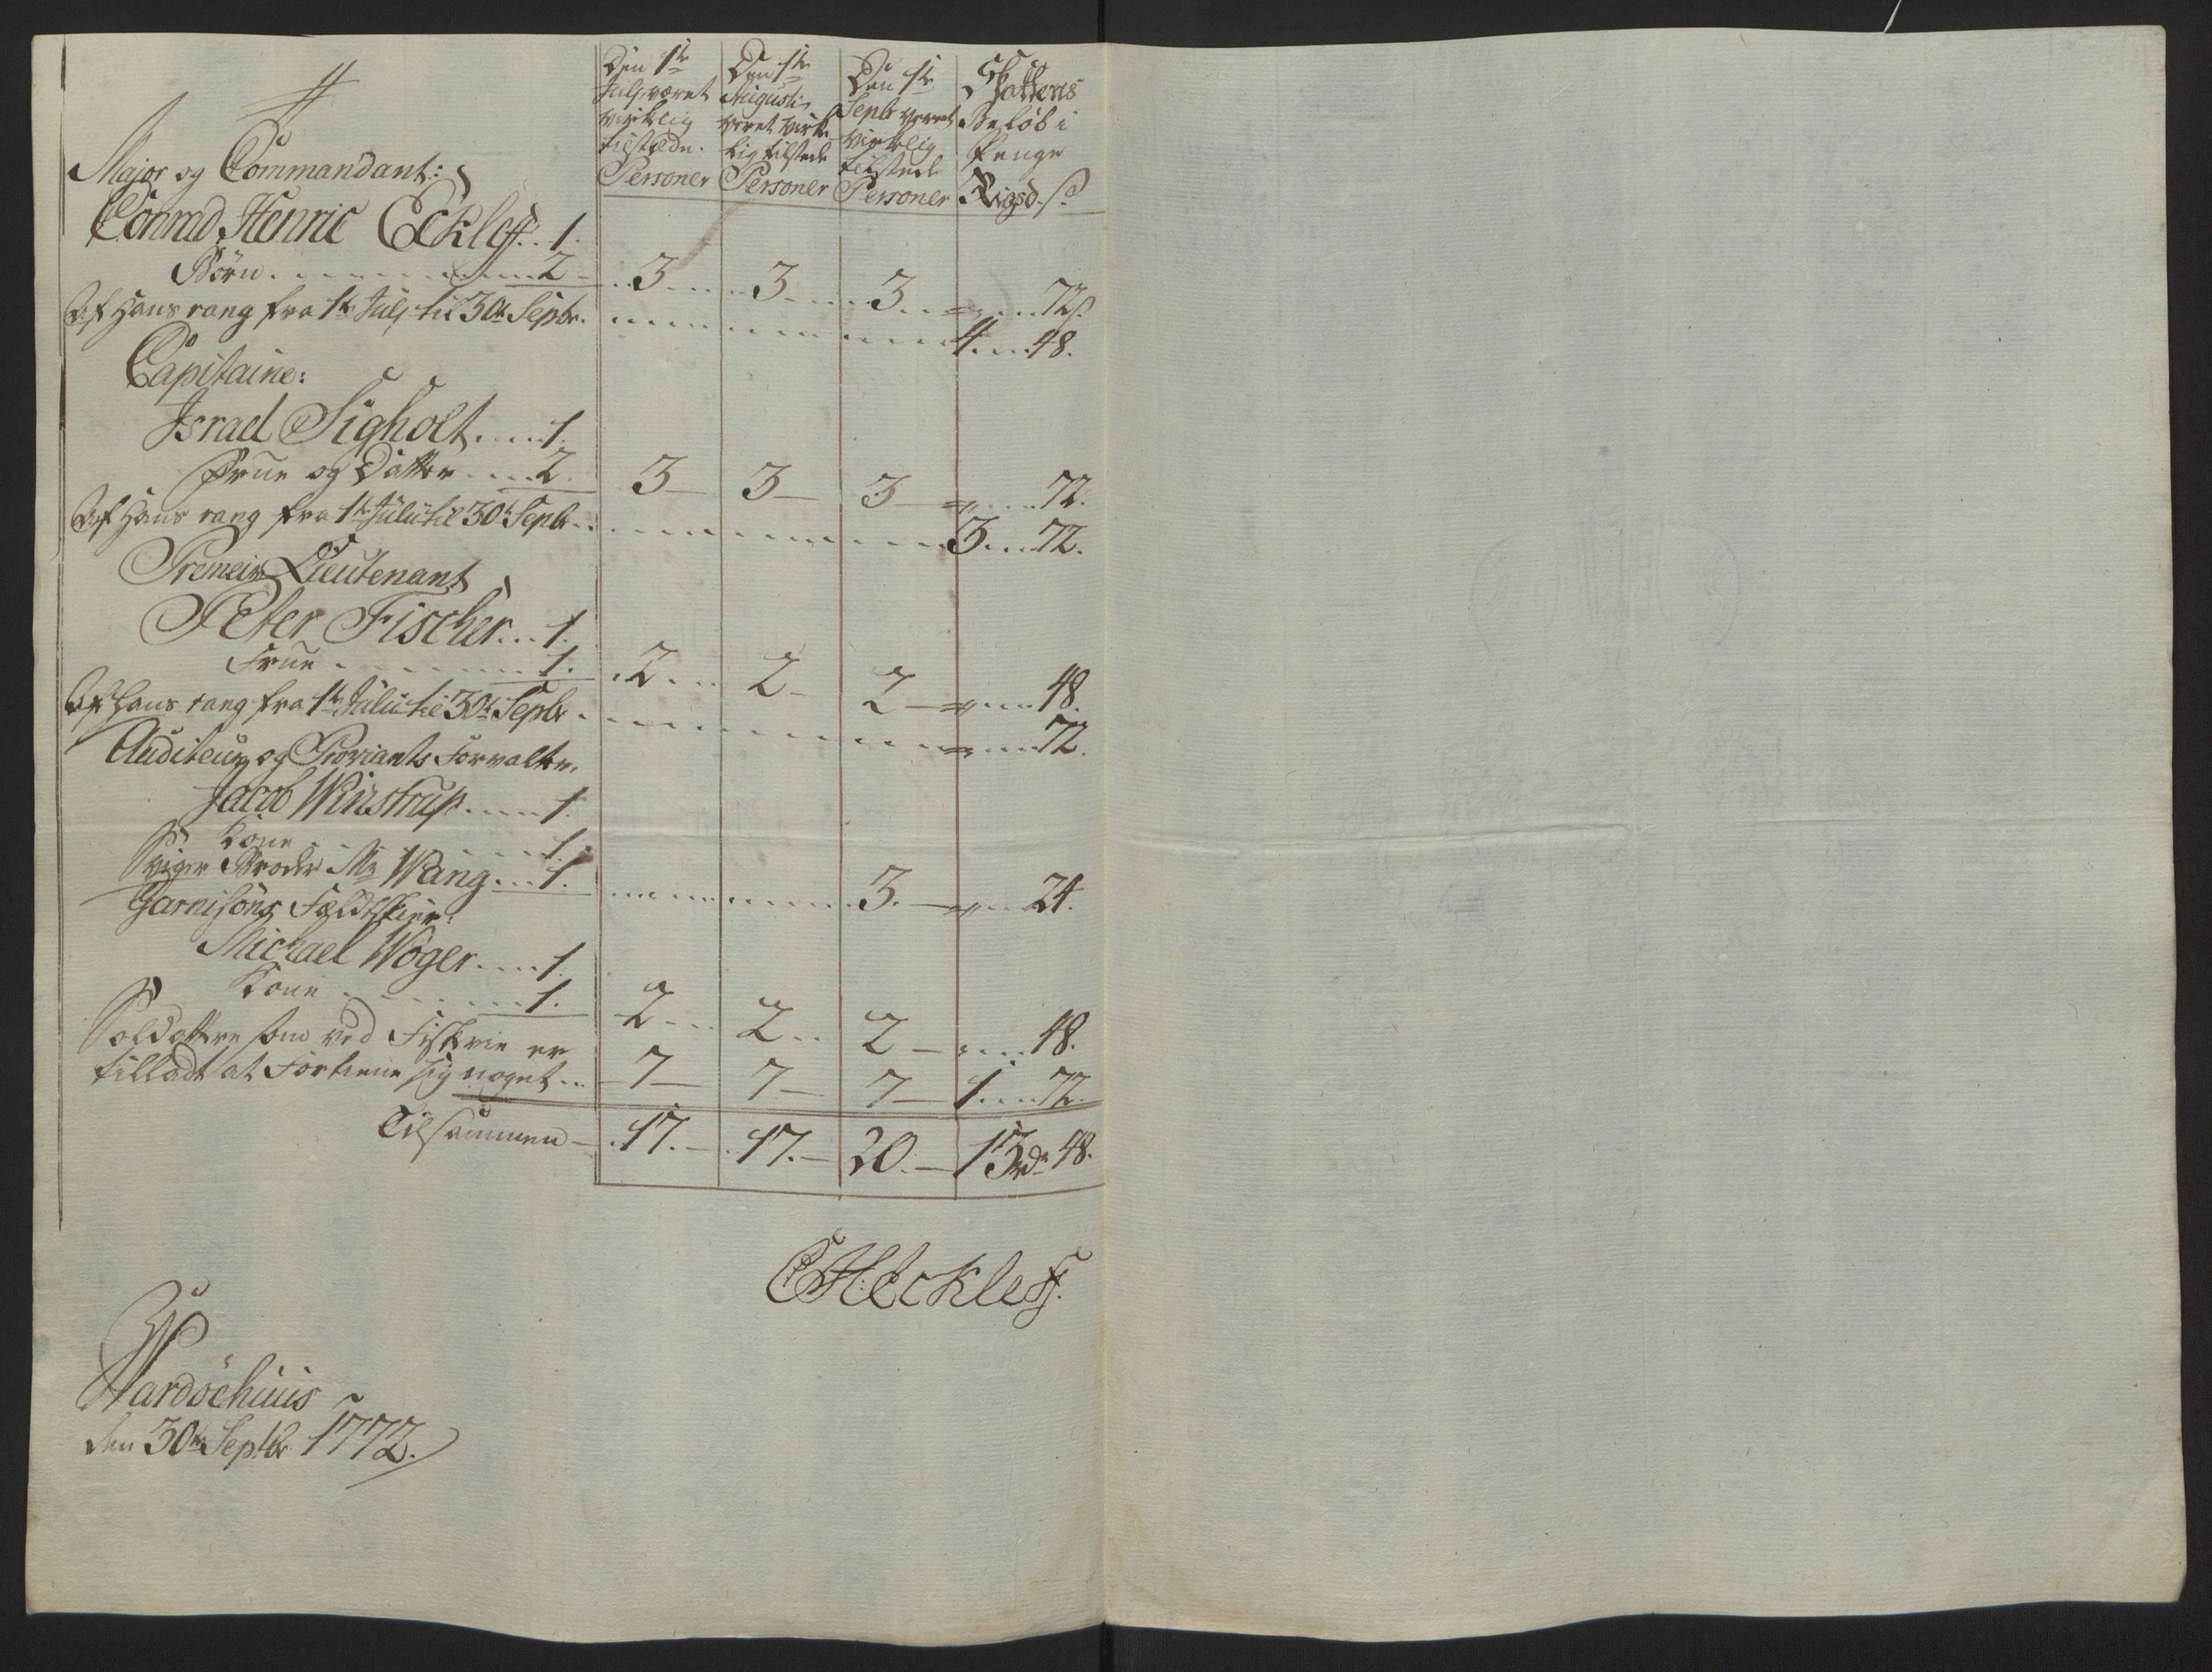 Den 1te July været virklig tilstæde. Personer
Den 1te Augusti været virklig tilstede Personer
Den 1te Septr været virklig tilstede Personer
Skattens Beløb i Penge Rigsd. s
Major og Commandant:
Conrad Henric Eckleff.. 1.
Börn 2 3 3 3 72 s
Af Hans rang fra 1te July til 30te Septr. 4 48.
Capitaine:
Israel Sigholt 1.
Frue og Datter 2. 3 3 3 72.
Af Hans rang fra 1te Julii til 30te Septr. 3 72.
Premeir Lieutenant
Peter Fischer 1.
Frue 1. 2 2 2 48.
Af Hans rang fra 1te Julii til 30te Septr. 72.
Auditeur og Proviants Forvalter,
Jacob Winstrup 1.
Kone 1.
Sviger Broder Mr Wang 1. 3. 24.
Garnisons Feldskier:
Michael Woger 1.
Kone 1. 2 2 2 48.
Soldattre som ved Fiskerie er
tilladt at Fortiene sig noget 7 7 7 1 72.
Tilsammen 17. 17. 20. 13 rdr 48.
CHEckleff.
Wardöehuus
den 30te Septbr 1772.